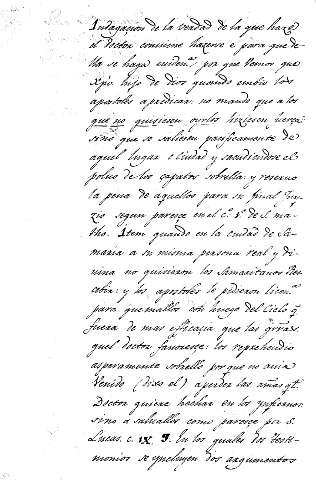 Indagacion de la verdad de la que haze
el Doctor conviene hacerse e para que de
lla se haga eviden.ª por que vemos que
Xpõ hijo de Dios quando embio los
apostoles a predicar no mando que a los
que no quisiesen oyrlos hiziesen fuerza
sino que se saliesen pacificamente de
aquel lugar o Ciudad y sacudiendose el
polvo de los capatos sobrella: y reservo
la pena de aquellos para su final
zio segun parece en el c.º de S. ma
tho. Item quando en la ciudad de Sa
maria a su misma persona real y di
uina no quisieron los Samaritanos Res
cebir: y los apostoles le pidieron licen.ª
para quemallos con fuego del Cielo q̃
fuera de mas efficacia que las
quel Doctor favoresce: los reprehendio
asperamente sobrello por que no auia
Venido (dixo el) a perder las añas q̃l
Doctor quiere hechar en los ynfiernos
sino a salvallas como parece por S.
Lucas. c. IX. 9. En los quales dos testi
monios se yncluyen dos argumentos